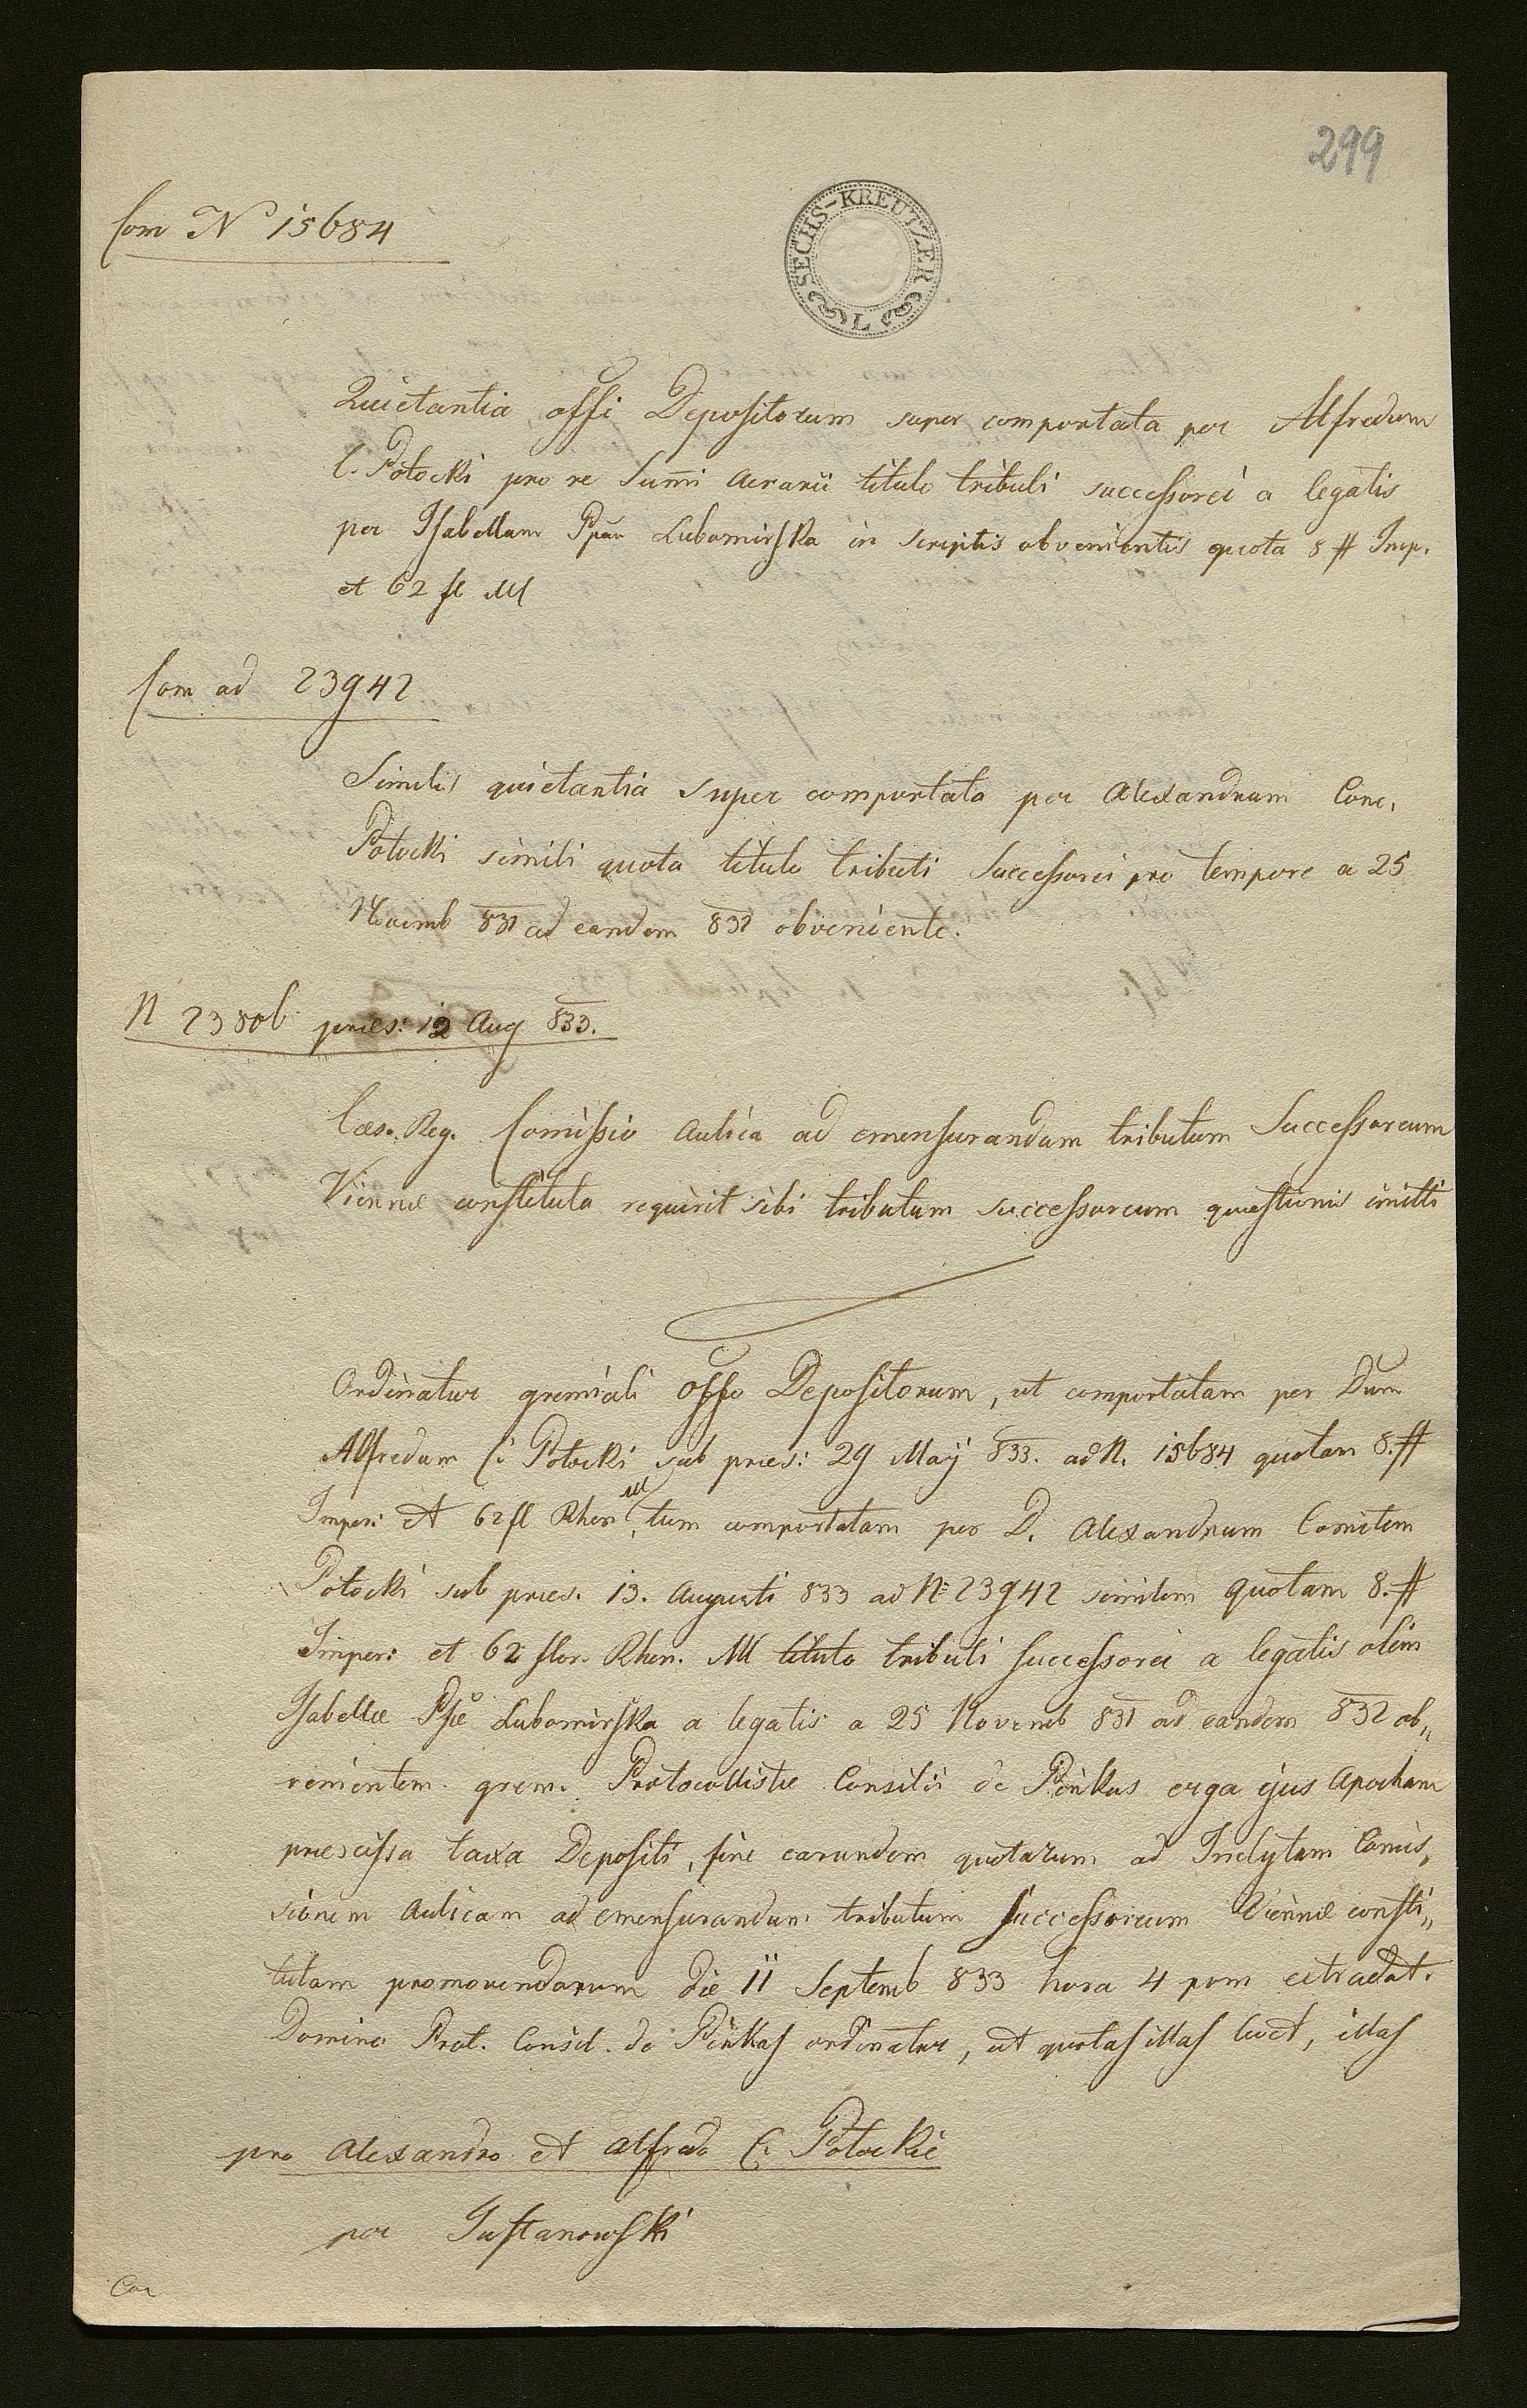 299
Com N 15684
SECHS-KREUTZER L
Quietantia offi Depositorum super comportata per Alfredum
C. Potocki pro re Sum̄i Aerarii titulo tributi successorei a legatis
per Isabellam Ppām Lubomirska in scriptis obvenientis quota 8 # Imp.
et 62 fl M
Com ad 23942
Similis quietantia super comportata per Alexandrum Com.
Potocki simili quota titulo tributi Successorei pro tempore a 25
Novemb 831 ad eandem 832 obveniente.
N 23806 præs: 12 Aug 833.
Cæs. Reg. Comissio Aulica ad emensurandum tributum Successoreum
Viennæ constituta requirit sibi tributum successoreum quæstionis imitti
Ordinatur gremiali Offo Depositorum, ut comportatam per Dum
Alfredum C. Potocki sub præs: 29 Maij 833. ad N. 15684 quotam 8. #
Imper: et 62 fl Rhen M, tum comportatam per D. Alexandrum Comitem
Potocki sub præs. 13. Augusti 833 ad N: 23942 similem quotam 8. #
Imper: et 62 flor. Rhen. M titulo tributi successorei a legatis olim
Isabellæ Psæ Lubomirska a legatis a 25 Novemb 831 ad eandem 832 ob„
venientem grem. Protocollistæ Consilii de Pinkas erga ejus Apocham
præscissa taxa Depositi, fine earundem quotarum ad Inclytam Comis„
sionem Aulicam ad emensurandum tributum successoreum Viennæ consti„
tutam promovendarum die 11 Septemb 833 hora 4 pom extradat.
Domino Prot. Consil. de Pinkas ordinatur, ut quotas illas levet, illas
pro Alexandro et Alfredo C. Potockie
per Justanowski